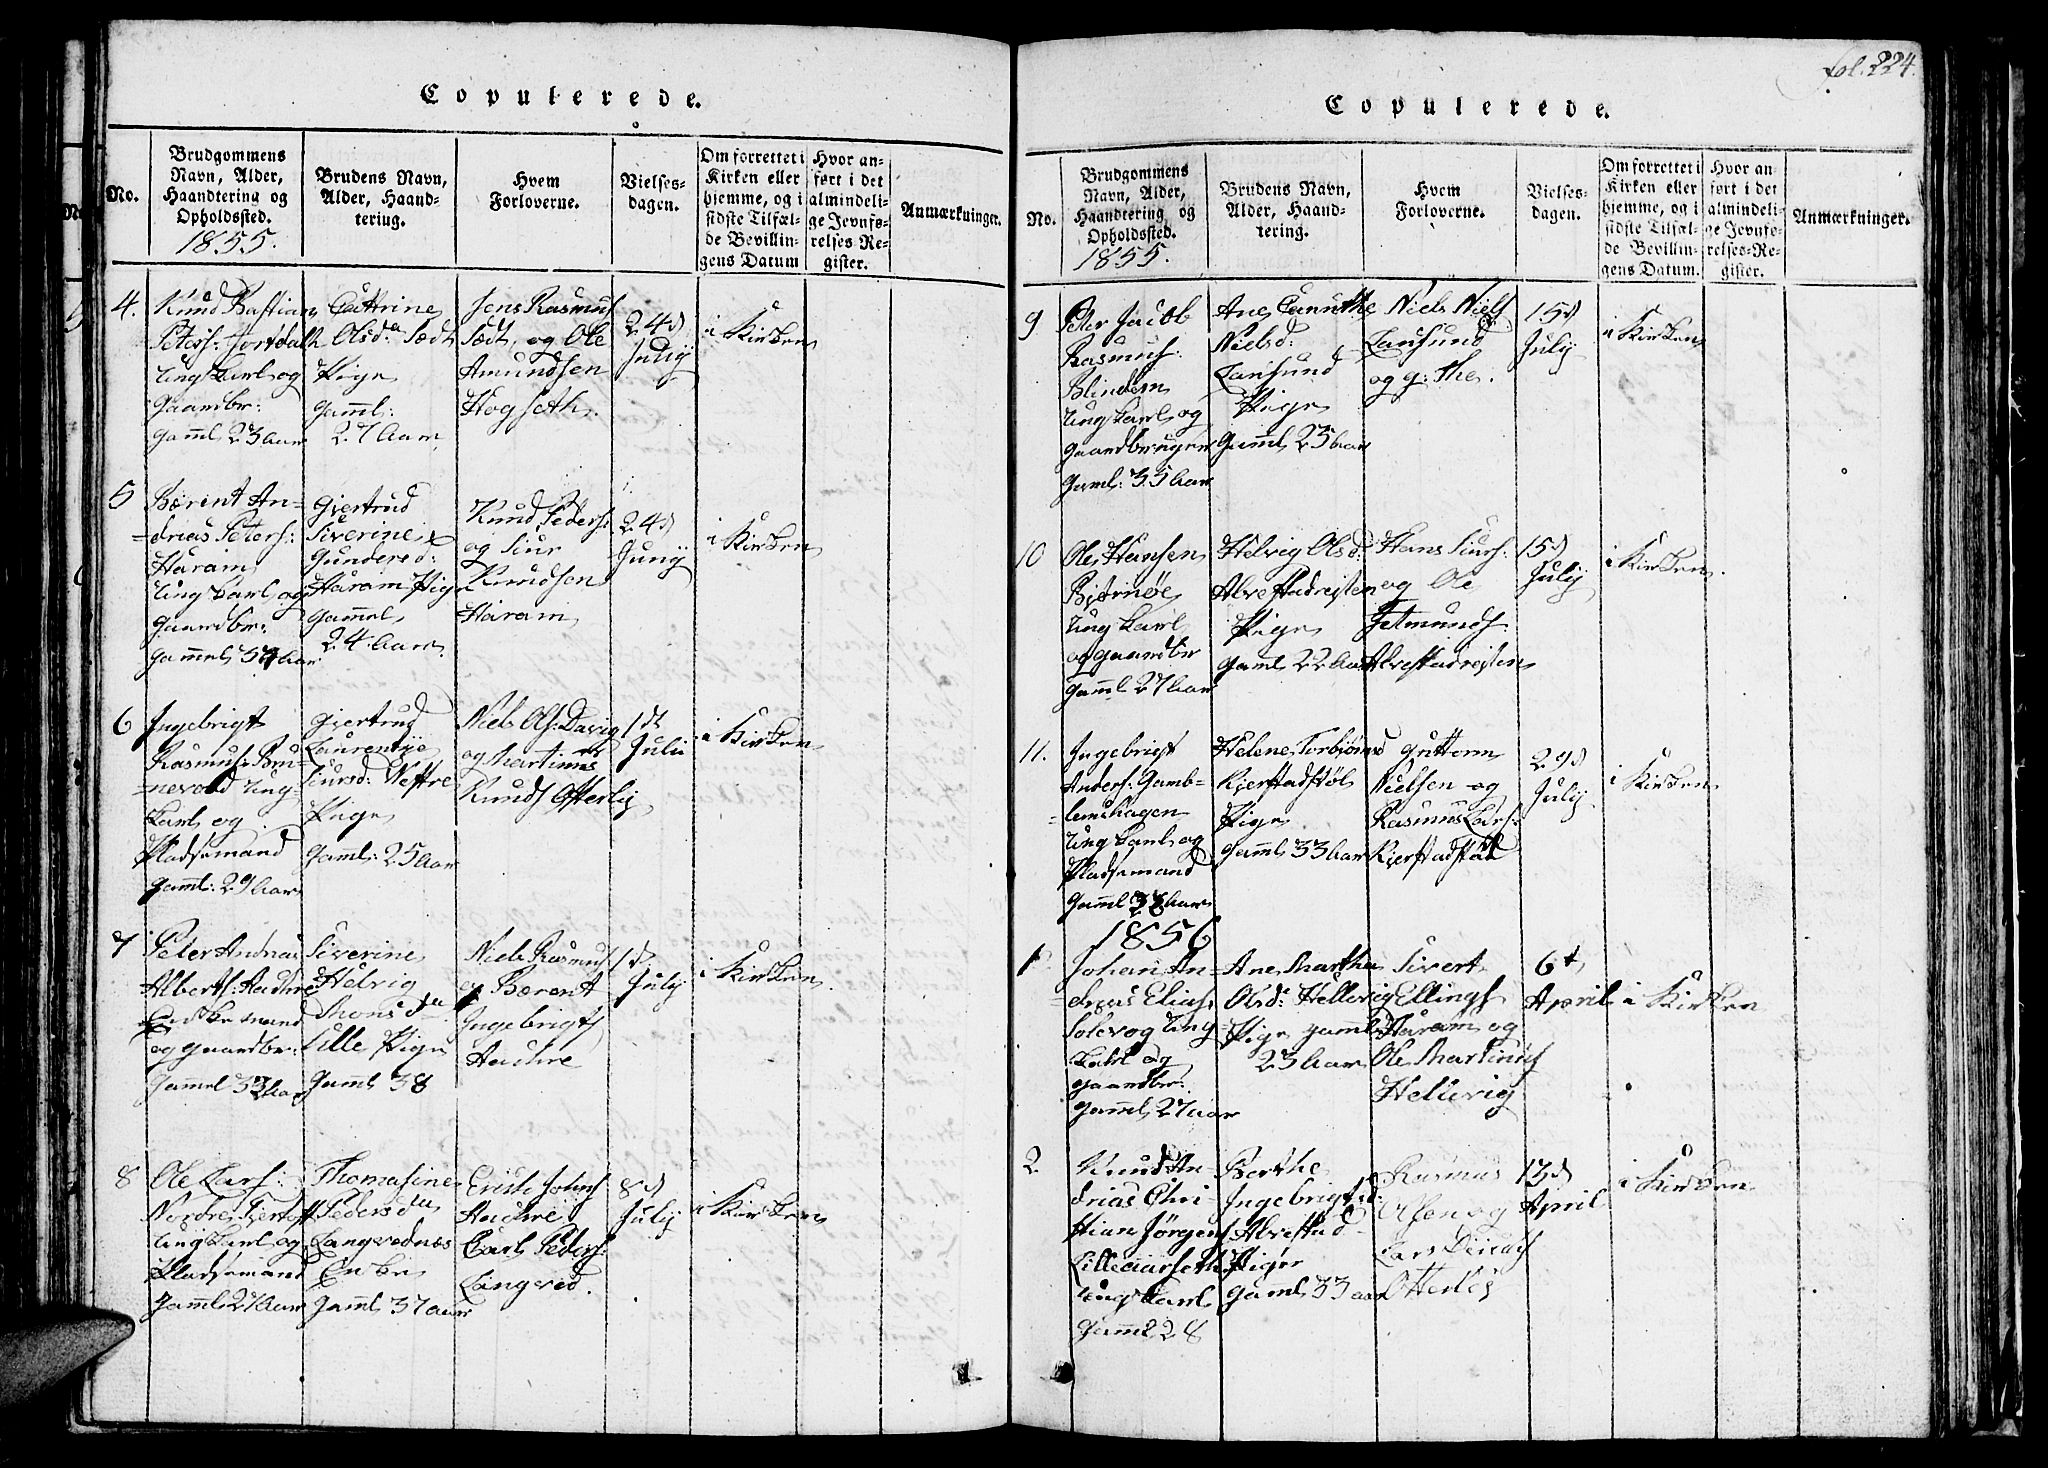 Copulerede.
No.
Brudgommens Navn, Alder, Haandtering og Opholdssted.
1855.
Brudens Navn, Alder, Haandteriug.
Hvem Forloverne.
Vielsesdagen.
Om forrettet i Kirken eller hjemme, og i sidste Tilfælde Bevillingens Datum
Hvor anført i det almindelige Jevnførelses-Register.
Anmærkninger.
4.
Knud Bastian
Peters: Fjortdalh
Ungkarl og
Gaardbr:
gaml 23 Aar
Cathrine
Olsda Sædt
Pige
gaml:
27 Aar
Jens Rasmus
Sødt, og Ole
Amundsen
Hogseth.
24d
July
i Kirken
5
Bærent An-
=drias Peters:
Haram
Ungkarl og
Gaardbr:
gammel Aar
Gjertrud
Siverine
Gundersd:
Haram Pige
gammel
24 Aar
Knud Peders:
og Siur
Knudsen
Haram
24d
Juny
i Kirken
6
Ingebrigt
Rasmus: Bru-
=nevold Ung-
karl og
Pladsemand
gaml: 29 Aar
Gjertrud
Laurentze
Siursd: Vestre
Pige
gaml: 25 Aar
Niels Ols: Davig
og Martinus
Knuds Østerlig
1d
Julii
i Kirken
7
Peter Andreas
Alberts: Aachre
Enkemand
og gaardbr:
gammel 33 Aar
Siverine
Helvig
Monsda
Lille Pige
gaml 38
Niels Rasmus
og Bærent
Ingebrigts
Aachre
1d
July
i Kirken
8
Ole Lars:
Nordre Fjertoft
Ungkarl og
Pladsemand
gaml 27 Aar
Thomasine
Pedersda
Langvednæs
Enke
gaml 37 aar
Erich Johns
Aachre
Carl Peders:
Longved.
8d
July
i Kirken
fol. 224.
Copulerede.
No.
Brudgommens Navn, Alder, Haandtering og Opholdssted.
1855.
Brudens Navn, Alder, Haandtering.
Hvem Forloverne.
Vielsesdagen.
Om forrettet i Kirken eller hjemme, og i sidste Tilfælde Bevillingens Datum.
Hvor anført i det almindelige Jevnførelses-Register.
Anmærkninger.
9
Peter Jacob
Rasmus:
Blindem
Ungkarl og
gaardbruger
gaml: 35 Aar
Ane Canuthe
Nielsd:
Longsund
Pige
gaml 23 Aar
Niels Niels
Longsund
og g: The.
15d
July
i Kirken
10
Ole Hansen
Bjørnøe
Ungkarl
og gaardbr
gaml 27 Aar
Helvig Olsd:
Alvestadrejsten
Pige
gaml 22 Aar
Hans Siurs:
og Ole
Jetmunds:
Alvestadrejsten
15d
July
i Kirken.
11.
Ingebrigt
Anders: Gamb-
=lemshagen
Ungkarl og
Pladsemand
gaml Aar
Helene Torbjørnsd
Kjerstadstøl
Pige
gaml 33 Aar
Guttorm
Nielsen og
Rasmus Lars:
Kjerstadstøl
29d
July
i Kirken
1856
1
Johan An-
=drias Elias
Solevog Ung-
karl og
gaardbr:
gaml 27 aar
Ane Martha
Olsd: Hellevig
Pige gaml
23 Aar
Sivert
Ellings
Haram og
Ole Martinus
Hellevig
6t
April
i Kirken
2
Knud An-
drias Chri-
stian Jørgens
Lilleaarseth
Ungkarl
gaml 28
Berthe
Ingebrigtsd:
Alvestad
Pige
gaml 33 aar
Rasmus
Olsen og
Lars
Otterlei
13d
April
i Kirken